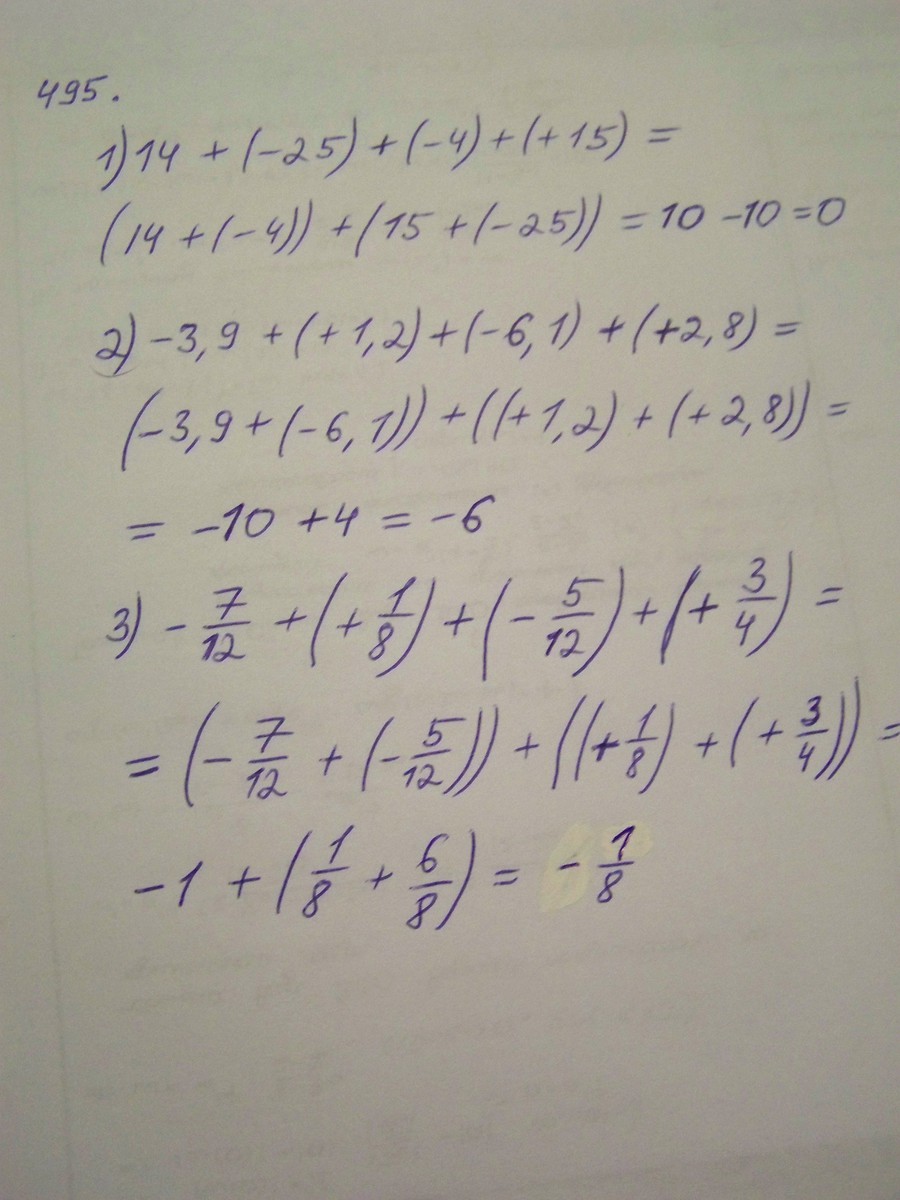 495.
1) 14 + (-25) + (-4) + (+15) =
(14 + (-4)) + (15 + (-25)) = 10 - 10 = 0
2) -3,9 + (+1,2) + (-6,1) + (+2,8) =
(-3,9 + (-6,1)) + ((+1,2) + (+2,8)) =
= -10 + 4 = -6
3) - 7/12 + (+ 1/8) + (- 5/12) + (+ 3/4) =
= (- 7/12 + (- 5/12)) + ((+ 1/8) + (+ 3/4)) =
-1 + (1/8 + 6/8) = - 1/8